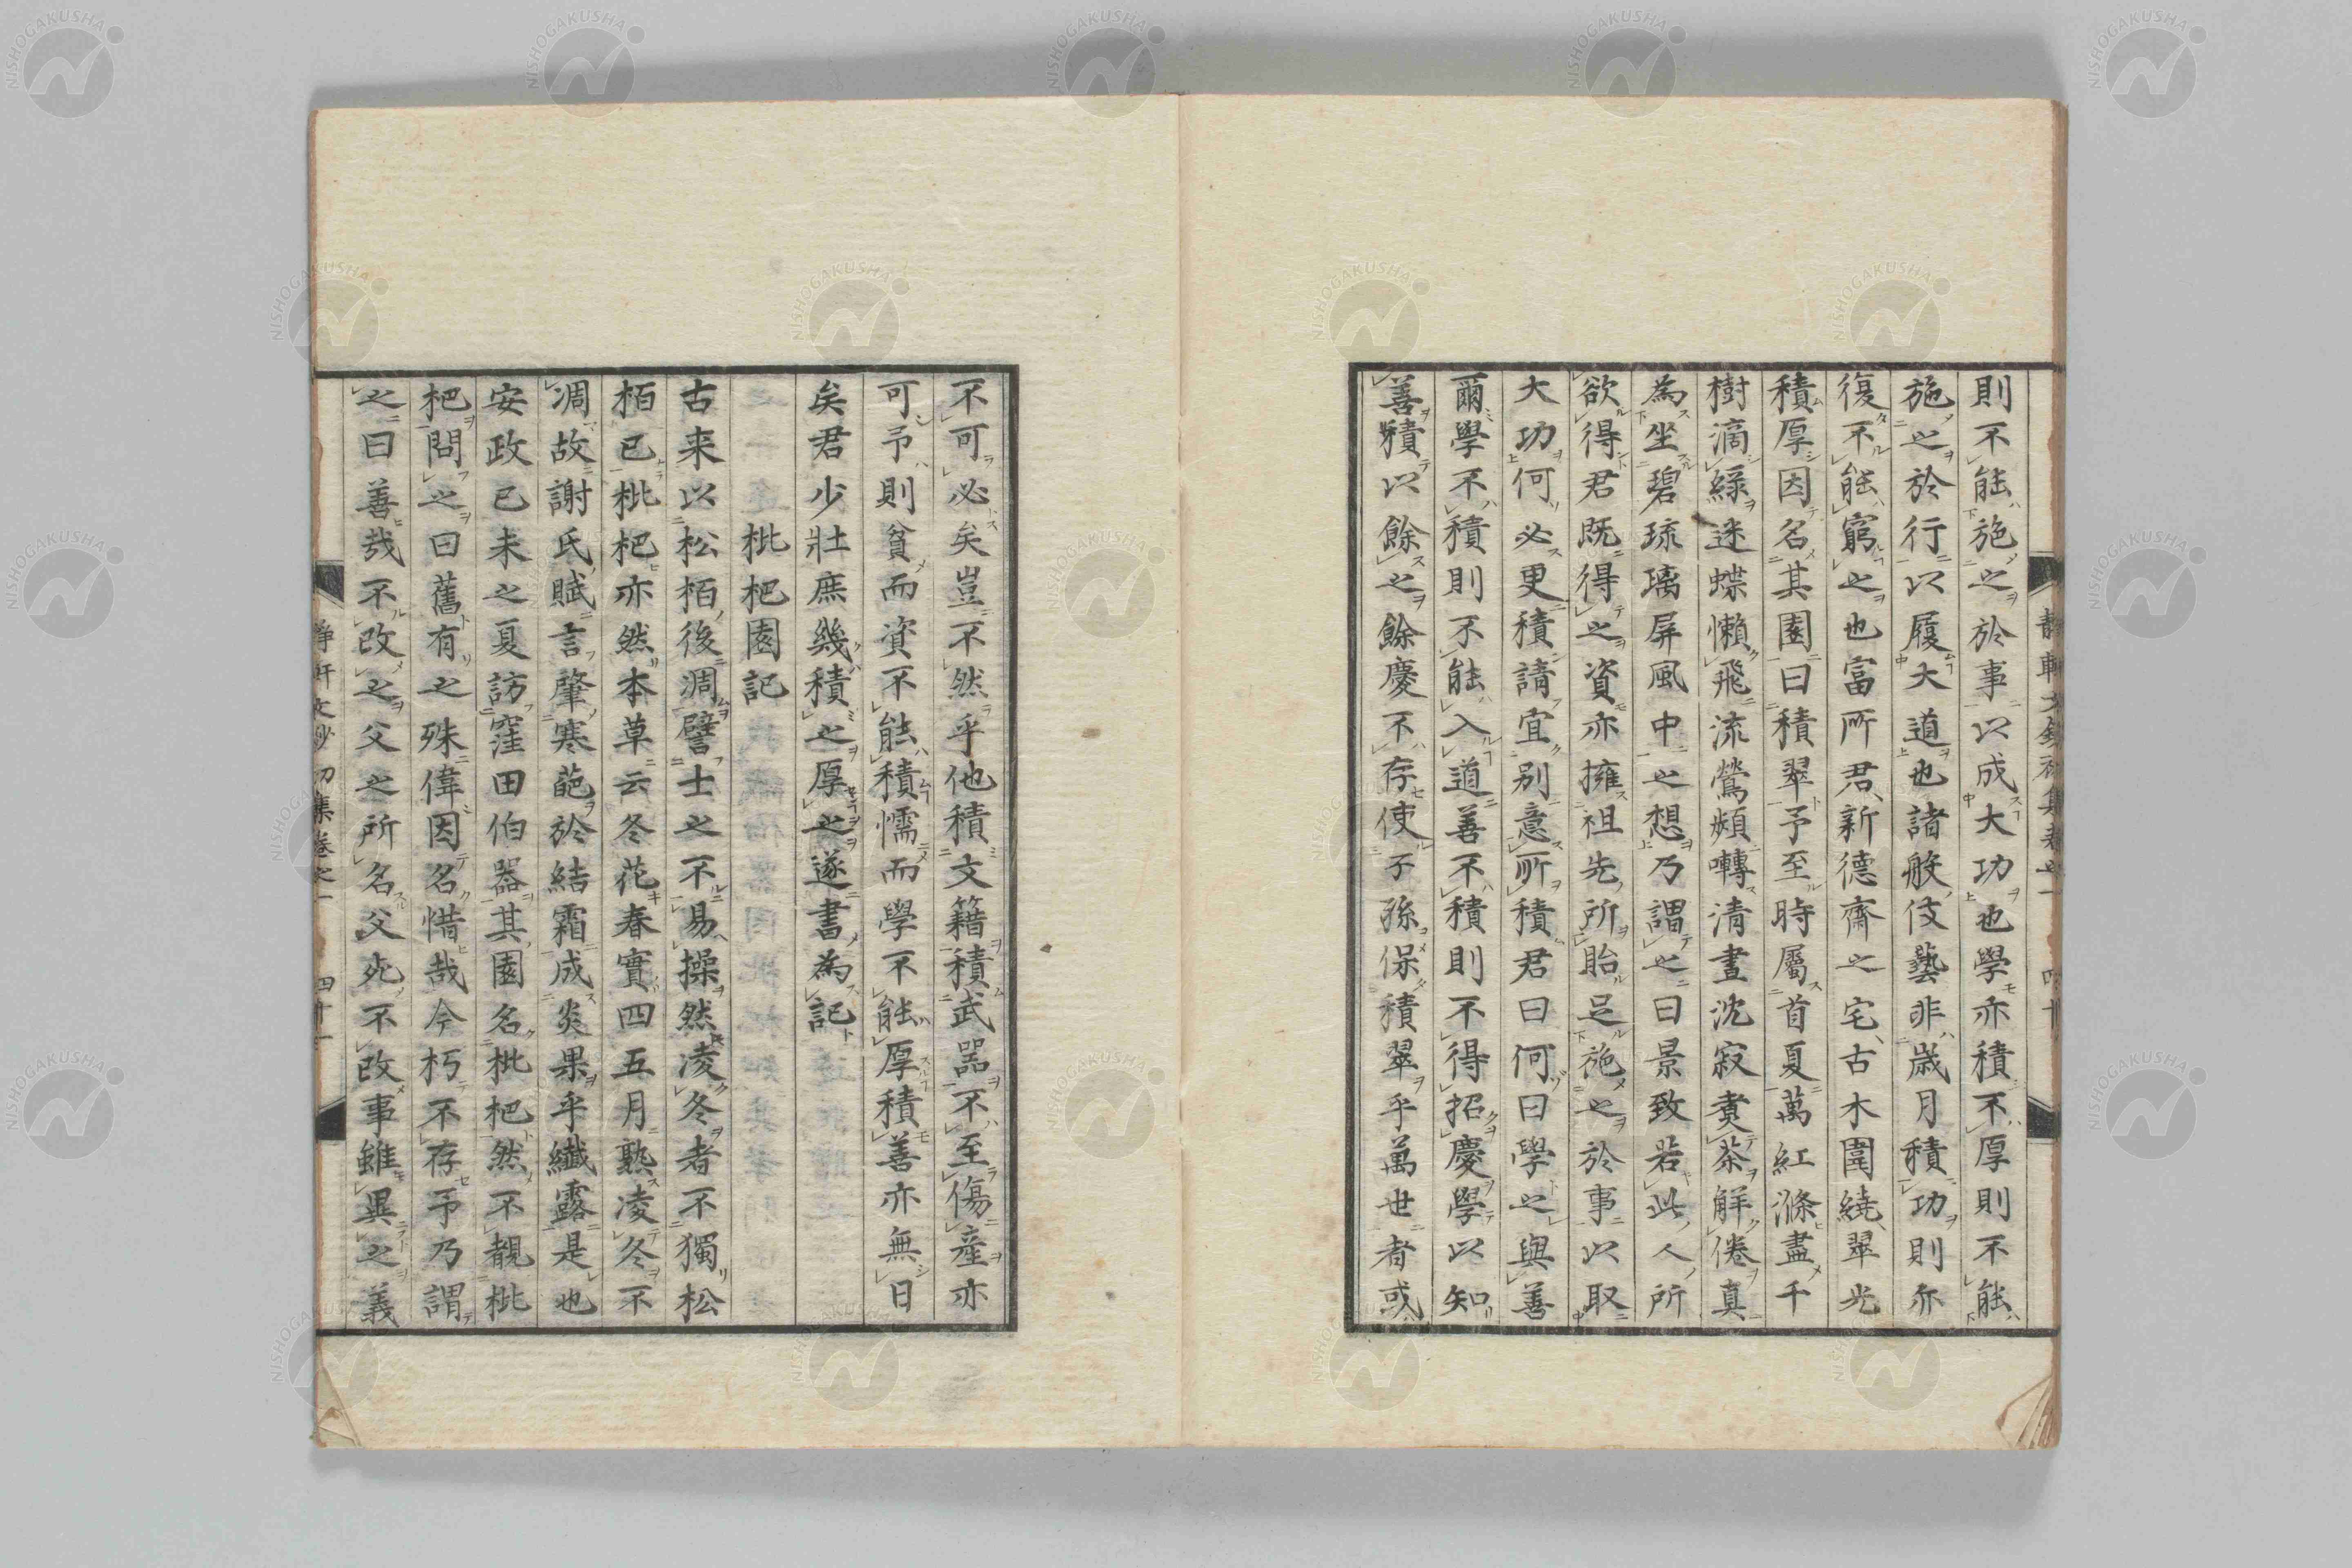 則不能施之於事以成大功也學亦積不厚則不能
施之於行以履大道也諸般伎藝非歳月積功則亦
復不能窮之也富所君新德齋之宅古木圍繞翠光
積厚因名其園曰積翠予至時屬首夏萬紅滌盡千
樹滴綠迷蝶懶飛流鶯頻囀清晝沈寂煑茶解倦真
為坐碧琉璃屏風中之想乃謂之曰景致若此人所
欲得君既得之資亦擁祖先所貽足施之於事以取
大功何必更積請宜別意所積君曰何曰學之與善
爾學不積則不能入道善不積則不得招慶學以知
善積以餘之餘慶不存使子孫保積翠乎萬世者或
不可必矣豈不然乎他積文籍積武器不至傷産亦
可予則貧而資不能積懦而學不能厚積善亦無日
矣君少壯庶幾積之厚之遂書為記
枇杷園記
古来以松栢後凋譬士之不易操然凌冬者不獨松
栢已枇杷亦然本草云冬花春實四五月熟凌冬不
凋故謝氏賦言肇寒葩於結霜成炎果乎纖露是也
安政己未之夏訪窪田伯器其園名枇杷然不覩枇
杷問之曰舊有之殊偉因名惜哉今朽不存予乃謂
之曰善哉不改之父之所名父死不改事雖異之義
静軒文鈔初集卷之一 四十一
NISHOGAKUSHA